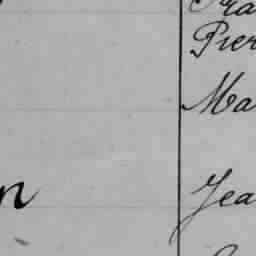 Pier
Ma
n Jea